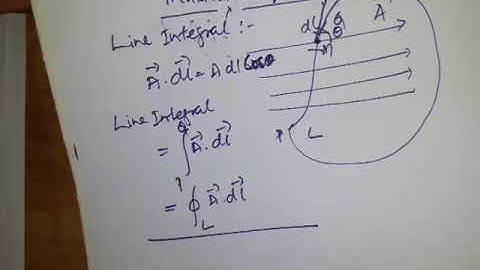 Line Integral :-
A⃗ . dl⃗ = A dl Cosθ
Line Integral
= ∫ A⃗ . dl⃗
= ∮ A⃗ . dl⃗
L
dl
θ
A
P
L